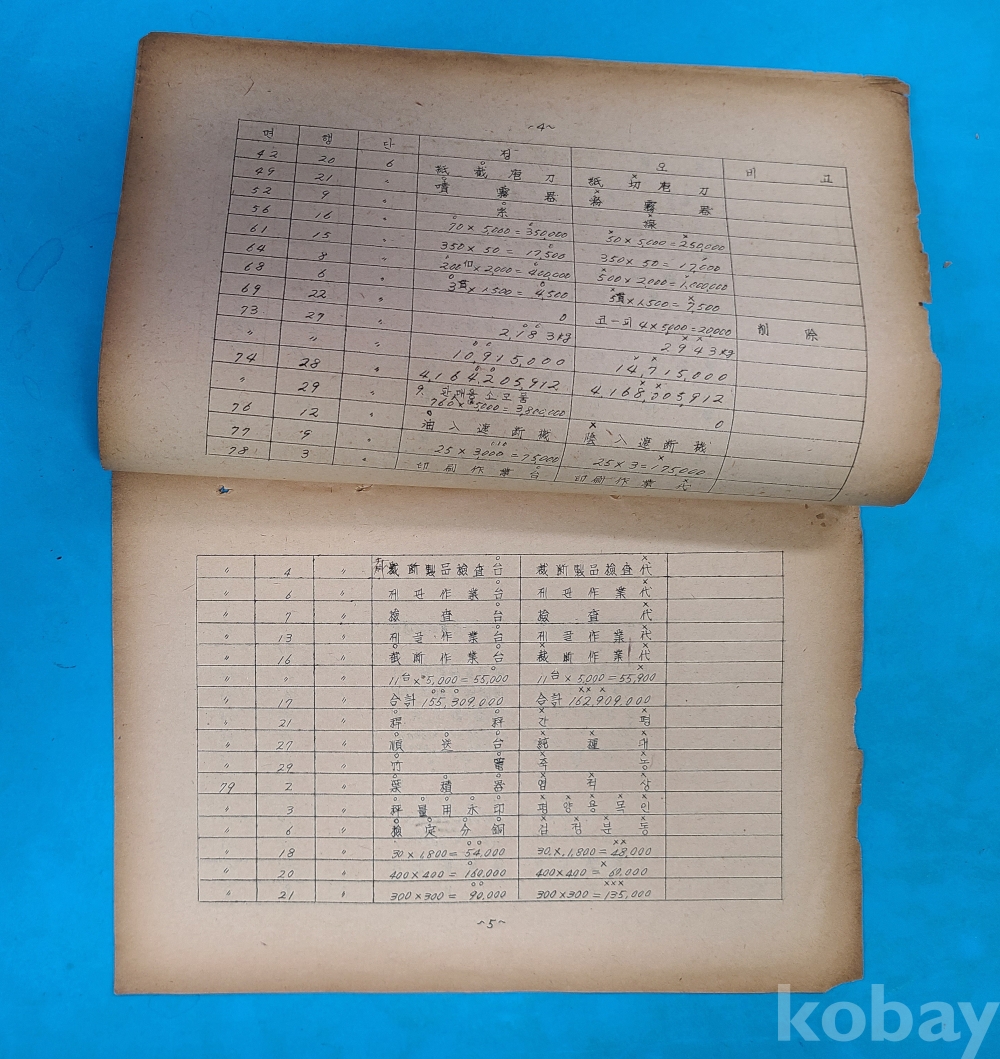 ~4~
면 행 단 정 오 비 고
42 20 6 紙截庖刀 紙切庖刀
49 21 〃 噴霧器 霧器
52 9 〃
56 16 〃 70 × 5,000 = 350,000 50 × 5,000 = 250,000
61 15 〃 350 × 50 = 17,500 350 × 50 = 17,000
64 8 〃 200 × 2,000 = 400,000 500 × 2,000 = 1,000,000
68 6 〃 3貫 × 1,500 = 4,500 5貫 × 1,500 = 7,500
69 22 〃 0 코-피 4 × 5,000 = 20,000 削除
73 27 〃 2,183kg 2943kg
〃 〃 〃 10,915,000 14,715,000
74 28 〃 4,164,205,912 4,168,005,912
〃 29 〃 9. 판매용소모품 760 × 5,000 = 3,800,000 0
76 12 〃 油入遮断機 陰入遮断機
77 9 〃 25 × 3,000 = 75,000 25 × 3 = 175,000
78 3 〃 印刷作業台 印刷作業代
〃 4 〃 裁断製品検査台 裁断製品検査代
〃 6 〃 제판作業台 제판作業代
〃 7 〃 検査台 検査代
〃 13 〃 제끌作業台 제끌作業代
〃 16 〃 裁断作業台 裁断作業代
〃 〃 〃 11台 × 5,000 = 55,000 11台 × 5,000 = 55,900
〃 17 〃 合計 155,309,000 合計 162,909,000
〃 21 〃 桿秤 간평
〃 27 〃 順送台 純運대
〃 29 〃 竹籠 죽농
79 2 〃 葉積器 엽적상
〃 3 〃 秤量用木印 평양용목인
〃 6 〃 檢定分銅 검정분동
〃 18 〃 30 × 1,800 = 54,000 30 × 1,800 = 48,000
〃 20 〃 400 × 400 = 160,000 400 × 400 = 60,000
〃 21 〃 300 × 300 = 90,000 300 × 300 = 135,000
~5~
kobay